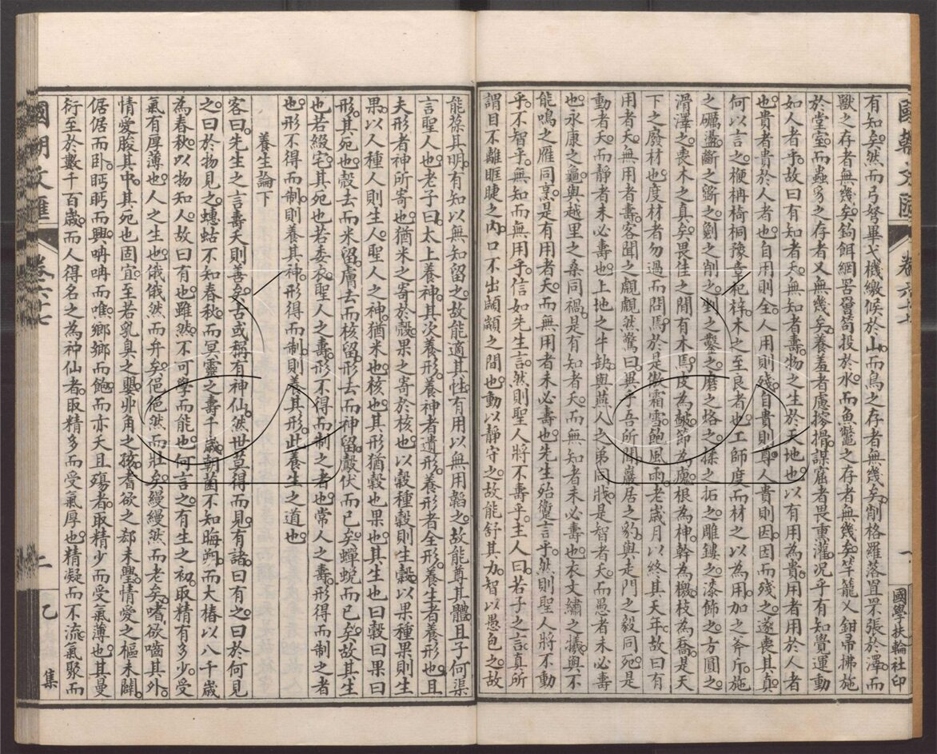 國朝文匯
卷六十七
一
國學扶輪社印
有知矣然而弓弩畢弋機繳候於山而鳥之存者無幾矣削格羅落罝罘張於澤而
獸之存者無幾矣鉤餌網罟罾笱投於水而魚鼈之存者無幾矣竿籠乂鉗帚拂施
於堂室而蟲豸之存者又無幾矣養羞者慮摎搰謀窟者畏熏灌況乎有知貴運動
如人者乎故曰有知者夭無知者壽物之生於天地也以有用為貴用者用於人者
也貴者貴於人者也自用則全人用則殘自貴則尊人貴則因因而殘之遂喪其真
何以言之楩枏椅桐豫章杞梓木之至良者也工師度而材之以為用加之斧斤施
之礪盪斷之斲之劖之削之刲之鑿之磨之烙之揉之拓之雕鏤之漆飾之方圓之
滑澤之喪木之真矣畏佳之間有木焉皮為皴節為癭根為神幹為機枝為喬是天
下之廢材也度材者勿過而問焉於是貸霜雪飽風雨老歲月以終其天年故曰有
用者夭無用者壽客聞之覷覷然驚曰異乎吾所聞巖居之豹與走門之毅同死是
動者夭而靜者未必壽也上地之牛缺與燕人之弟同戕是智者夭而愚者未必壽
也永康之龜與越里之桑同禍是有知者夭而無知者未必壽也衣文繡之犧與不
能鳴之雁同烹是有用者夭而無用者未必壽也先生殆讆言乎然則聖人將不動
乎不智乎無知而無用乎信如先生言然則聖人將不壽乎主人曰若子之言真所
謂目不離眶睫之內口不出顑顬之間也動以靜守之故能舒其力智以愚包之故
能葆其明有知以無知留之故能適其性有用以無用韜之故能尊其體且子何渠
言聖人也老子曰太上養神其次養形養神者遺形養形者全形養生者養形也且
夫形者神所寄也猶米之寄於殼果之寄於核也以穀種穀則生穀以果種果則生
果以人種人則生人聖人之神猶米也核也其形猶穀也果也其生也曰穀曰果曰
形其宛也殼去而米留膚去而核留形去而神留鷇伏而已矣蟬蛻而已矣故其生
也若綴宅其宛也若委衣聖人之壽形不得而制之者也常人之壽形得而制之者
也形不得而制則養其神形得而制則養其形此養生之道也
養生論下
客曰先生之言壽夭則善矣古或稱有神仙然世莫得而見有諸曰有之曰於何見
之曰於物見之蟪蛄不知春秋而冥靈之壽千歲朝菌不知晦朔而大椿以八千歲
為春秋以物知人故曰有也雖然不可學而能也何言之有生之初取精有多少受
氣有厚薄也人之生也俄俄然而弁矣俋俋然而壯矣縵縵然而老矣嗜欲嗃其外
情愛朘其中其宛也固宜至若乳臭之嬰丱角之孩耆欲之郄未舋情愛之樞未闢
倨倨而臥眄眄而興呥呥而唯鄉鄉而飽而亦夭且殤者取精少而受氣薄也其曼
衍至於數千百歲而人得名之為神仙者取精多而受氣厚也精凝而不流氣聚而
國朝文匯
卷六十七
二
乙
集